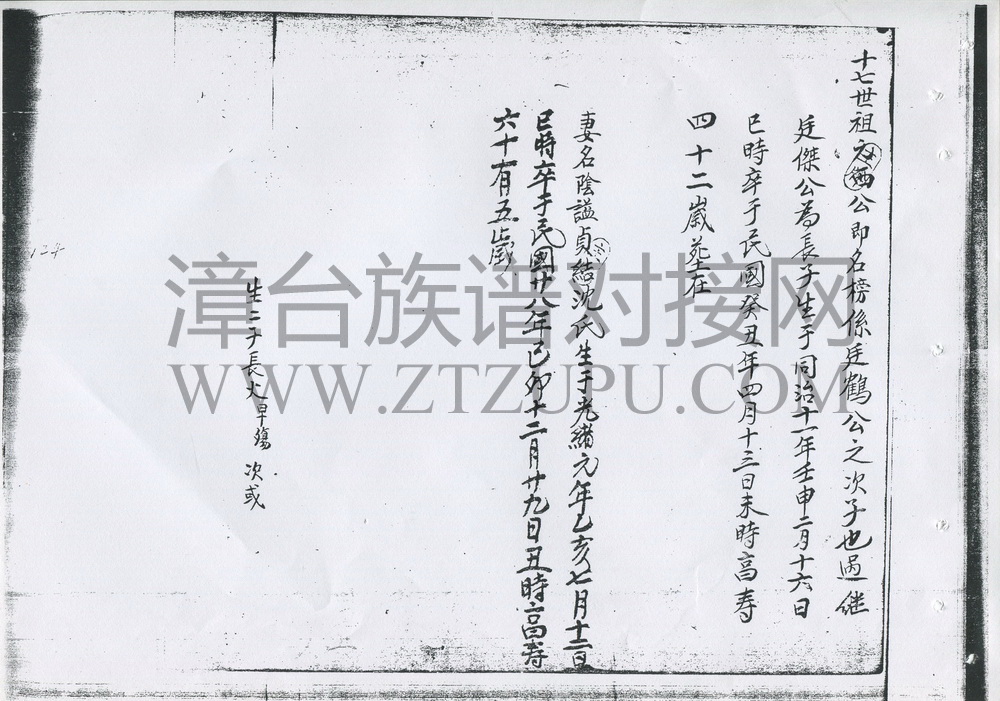 十七世祖公即名榜係廷鶴公之次子也過继
廷傑公為長子生于同治十一年壬申二月十六日
巳時卒于民國癸丑年四月十三日未時高寿
四十二歲塟在
妻名陰謚貞結沈氏生于光緒元年乙亥七月十二日
巳時卒于民國廿八年己卯十二月廿九日丑時高寿
六十有五歲
生二子長火早殤 次或
124
漳台族谱对接网
WWW.ZTZUPU.COM